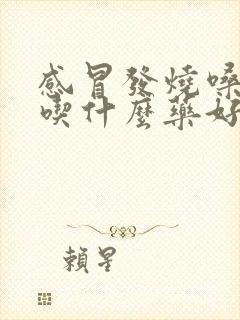 感冒發燒嗓
喫什麼藥好
賴星